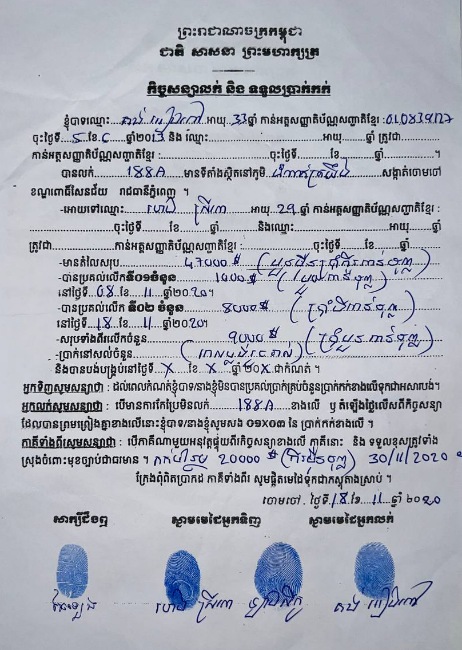 ព្រះរាជាណាចក្រកម្ពុជា
ជាតិ សាសនា ព្រះមហាក្សត្រ
កិច្ចសន្យាលក់ និង ទទួលប្រាក់កក់
ខ្ញុំបាទឈ្មោះ.... អាយុ.33ឆ្នាំ កាន់អត្តសញ្ញាតិប័ណ្ណសញ្ជាតិខ្មែរ :
ចុះថ្ងៃទី....ខែ....ឆ្នាំ២០13 និង ឈ្មោះ....អាយុ....ឆ្នាំ ត្រូវជា
កាន់អត្តសញ្ញាតិប័ណ្ណសញ្ជាតិខ្មែរ :....ចុះថ្ងៃទី....ខែ....ឆ្នាំ....។
បានលក់....188A....មានទីតាំងស្ថិតនៅភូមិ....សង្កាត់ចោមចៅ
ខណ្ឌពោធិ៍សែនជ័យ រាជធានីភ្នំពេញ ។
-អោយទៅឈ្មោះ....ហេង ស្រីពៅ....អាយុ.29.ឆ្នាំ កាន់អត្តសញ្ញាតិប័ណ្ណសញ្ជាតិខ្មែរ :
....ចុះថ្ងៃទី....ខែ....ឆ្នាំ....និងឈ្មោះ....អាយុ....ឆ្នាំ
ត្រូវជា....កាន់អត្តសញ្ញាតិប័ណ្ណសញ្ជាតិខ្មែរ :....ចុះថ្ងៃទី....ខែ....ឆ្នាំ....។
-មានតំលៃសរុប....47000 $
-បានប្រគល់លើកទី០១ចំនួន....1000 $
នៅថ្ងៃទី.08.ខែ.11.ឆ្នាំ២០20។
-បានប្រគល់លើកទី០២ ចំនួន....8000 $
នៅថ្ងៃទី.18.ខែ.11.ឆ្នាំ២០20។
-សរុបទាំងពីរលើកចំនួន....9000 $
-ប្រាក់នៅសល់ចំនួន
និងបានបង់បង្គ្រប់នៅថ្ងៃទី..X..ខែ..X..ឆ្នាំ២០X ជាកំណត់ ។
អ្នកទិញសូមសន្យាថា : ដល់ពេលកំណត់ខ្ញុំបាទ/នាងខ្ញុំមិនបានប្រគល់ប្រាក់គ្រប់ចំនួនប្រាក់កក់ខាងលើទុកជាអសារបង់។
អ្នកលក់សូមសន្យាថា : បើមានការកែប្រែមិនលក់....188A....ខាងលើ ឬ តំឡើងថ្លៃលើសពីកិច្ចសន្យា
ដែលបានព្រមព្រៀងគ្នាខាងលើនោះខ្ញុំបាទ/នាងខ្ញុំសូមសង ០១X០៣ នៃ ប្រាក់កក់ខាងលើ ។
ភាគីទាំងពីរសូមសន្យាថា : បើភាគីណាមួយអនុវត្តផ្ទុយពីកិច្ចសន្យាខាងលើ ភាគីនោះ និង ទទួលខុសត្រូវទាំង
ស្រុងចំពោះមុខច្បាប់ជាធរមាន ។ 20000 $ 30/11/2020
ក្រែងពុំពិតប្រាកដ ភាគីទាំងពីរ សូមផ្តិតមេដៃទុកជាភស្តុតាងស្រាប់ ។
ចោមចៅ. ថ្ងៃទី.18.ខែ.11.ឆ្នាំ ២០20
សាក្សីដឹងឮ ស្នាមមេដៃអ្នកទិញ ស្នាមមេដៃអ្នកលក់
ហេង ស្រីពៅ